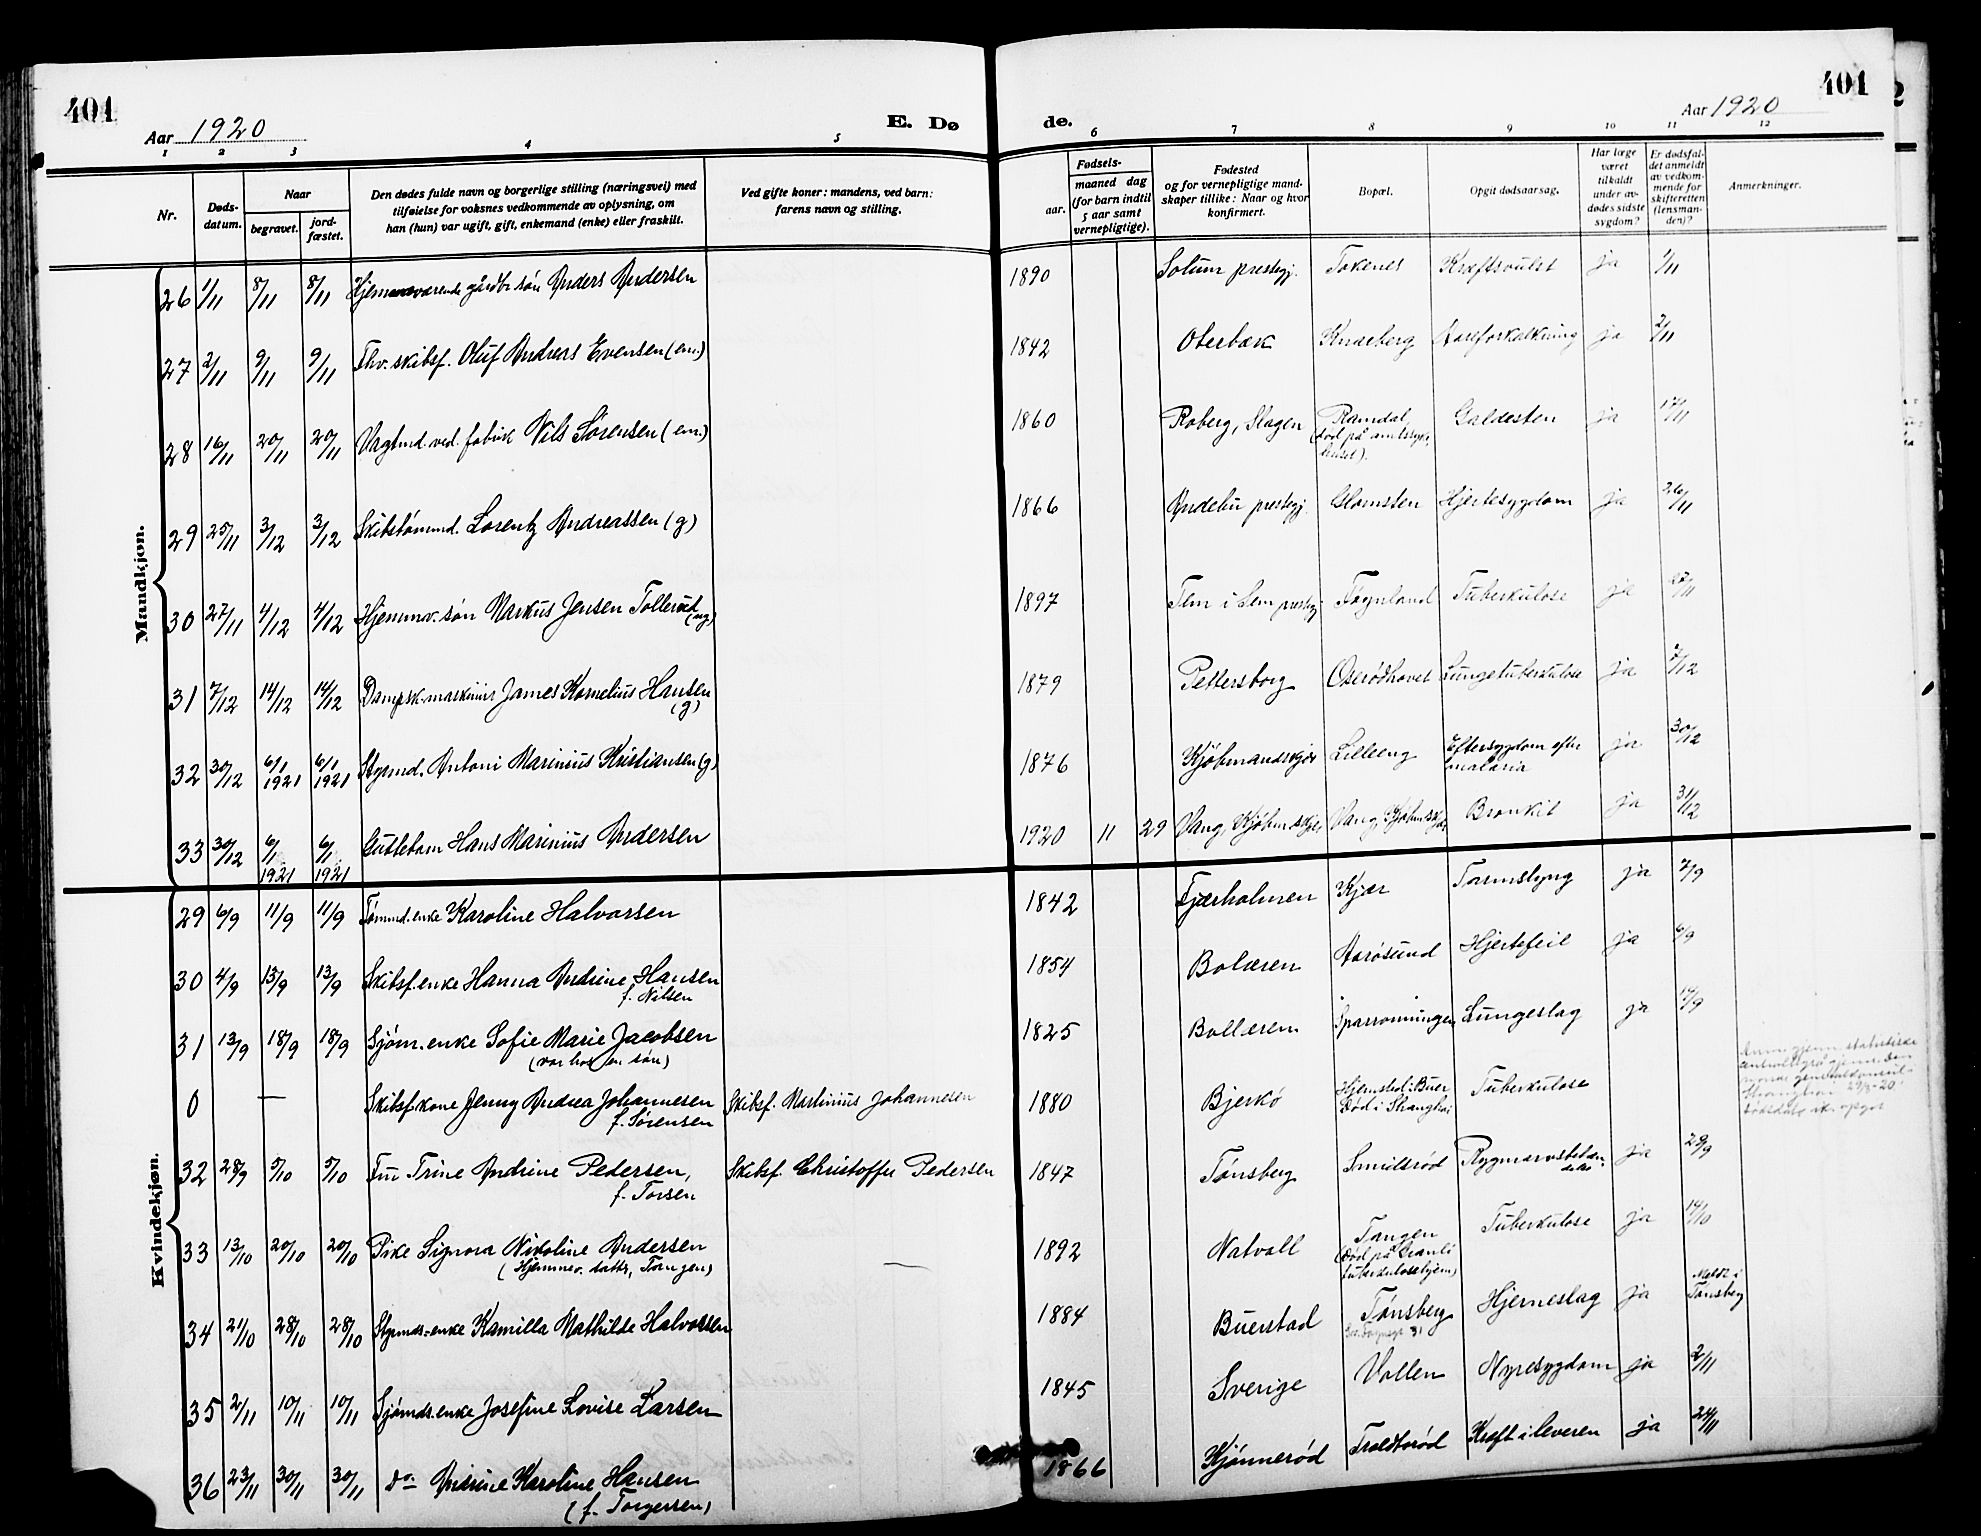 401
Aar 1920
E. Dø
de.
401
Aar 1920
1 2 3 4 5 6 7 8 9 10 11 12
Nr.
Døds-
datum.
Naar
begravet.
jord-
fæstet.
Den dødes fulde navn og borgerlige stilling (næringsvei) med
tilføielse for voksnes vedkommende av oplysning, om
han (hun) var ugift, gift, enkemand (enke) eller fraskilt.
Ved gifte koner: mandens, ved barn:
farens navn og stilling.
Fødsels-
aar.
maaned dag
(for barn indtil
5 aar samt
vernepligtige).
Fødested
og for vernepligtige mand-
skaper tillike: Naar og hvor
konfirmert.
Bopæl.
Opgit dødsaarsag.
Har læge
været
tilkaldt
under av-
dødes sidste
sygdom?
Er dødsfal-
det anmeldt
av vedkom-
mende for
skifteretten
(lensman-
den)?
Anmerkninger.
Mandkjøn.
26 1/11 8/11 8/11 Hjemmeværende gårdbr. søn Anders Andersen 1890 Solum prestegj. Tokenes Kræftsvulst ja 1/11
27 2/11 9/11 9/11 Fhv. skibsf. Oluf Andreas Evensen (em.) 1842 Oterbæk Knarberg Aareforkalkning ja 2/11
28 16/11 20/11 20/11 Vagtmd. ved. fabrik Nils Sørensen (em.) 1860 Roberg, Slagen Ramdal Galdesten ja 17/11
(død på amtssyge-
huset).
29 25/11 3/12 3/12 Skibstømmd. Lorentz Andreassen (g) 1866 Andebu prestegj. Glomsten Hjertesygdom ja 26/11
30 27/11 4/12 4/12 Hjemmev. søn Markus Jensen Tollerud 1897 Fem i Sem prestegj. Føynland Tuberkulose ja 27/11
(ug)
31 7/12 14/12 14/12 Dampsk. maskinist James Kornelius Hansen 1879 Pettersborg Oserødhovet Lungetuberkulose ja 7/12
(g)
32 30/12 6/1 1921 6/1 1921 Styrmd. Antoni Marinius Kristiansen (g) 1876 Kjøbmandskjær Lilleeng Eftersygdom efter ja 30/12
malaria
33 30/12 6/1 1921 6/1 1921 Guttebarn Hans Marinius Andersen 1920 11 29 Vang, Kjøbmskjær Vang, Kjøbmskjær Bronkit ja 31/12
Kvindekjøn.
29 6/9 11/9 11/9 Tømmd. enke Karoline Halvorsen 1842 Fjærholmen Kjær Tarmslyng ja 7/9
30 4/9 13/9 13/9 Skibsf. enke Hanna Andrine Hansen 1854 Bolæren Aarøsund Hjertefeil ja 6/9
f. Nilsen
31 13/9 18/9 18/9 Sjøm. enke Sofie Marie Jacobsen 1825 Bollæren Sparronningen Lungeslag ja 17/9
(var hos en søn)
0 — Skibsf. kone Jenny Andrea Johannesen Skibsf. Martinius Johannesen 1880 Bjerkø Hjemsted: Buer Tuberkulose
f. Sørensen Død i Shanghai
32 28/9 5/10 5/10 Fru Trine Andrine Pedersen, Skibsf. Christoffer Pedersen 1847 Tønsberg Smidsrød ja 29/9
f. Torsen
33 13/10 20/10 20/10 Pike Signora Nikoline Andersen — 1892 Natvall Tangen Tuberkulose ja 14/10
(Hjemmev. datter, Tangen) (død på Granli
tuberkulosehjem)
34 21/10 28/10 28/10 Styrmds. enke Kamilla Mathilde Halvorsen 1884 Buerstad Tønsberg Hjerneslag ja Meldt i
Tønsberg
35 2/11 10/11 10/11 Sjømds. enke Josefine Lovise Larsen 1845 Sverige Vollen Nyresygdom ja 2/11
36 23/11 30/11 30/11 do Andrine Karoline Hansen 1866 Kjønnerød Troldbrød Kræft i leveren ja 24/11
(f. Torgersen)